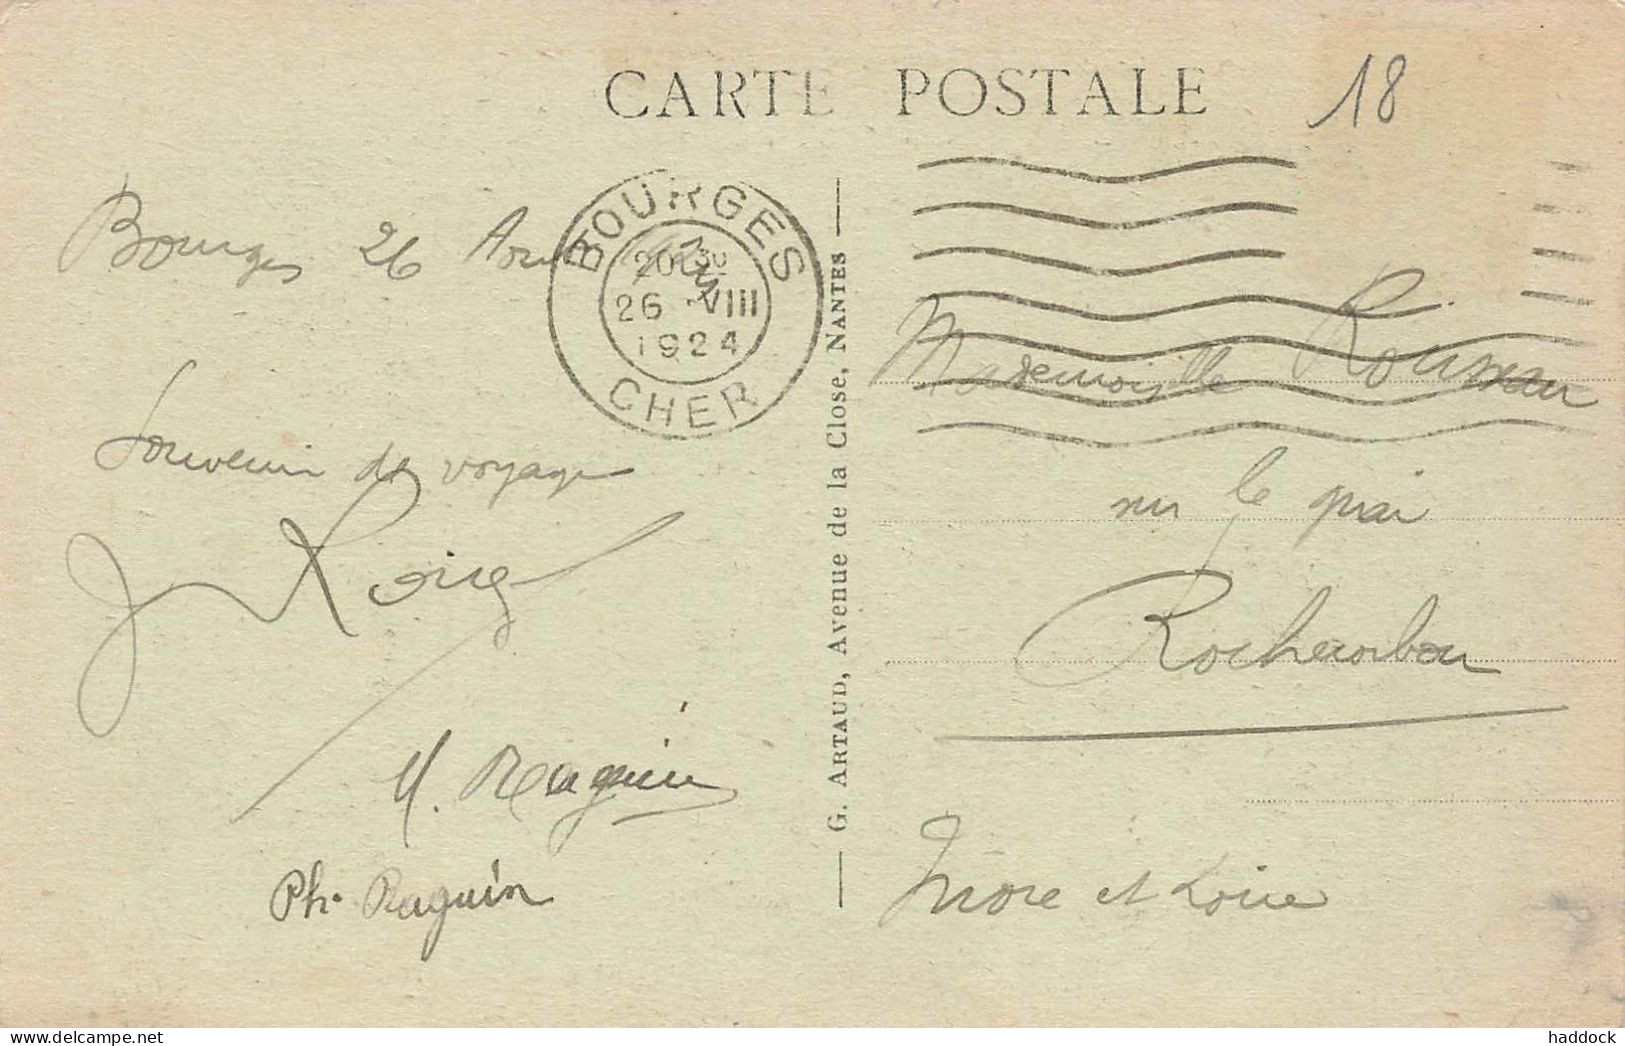 CARTE POSTALE
18
Bourges 26 Août
BOURGES
20 30
26 - VIII
1924
CHER
Souvenir de voyage
M. Raguin
Ph. Raguin
G. ARTAUD, Avenue de la Close, NANTES
Mademoiselle Rousseau
sur le quai
Rochecorbon
Indre et Loire
haddock